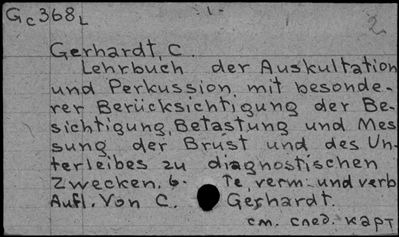 Gc368L -1- 2
Gerhardt, C.
Lehrbuch der Auskultation
und Perkussion mit besonde-
rer Berücksichtigung der Be-
sichtigung, Betastung und Mes
sung der Brust und des Un-
terleibes zu diagnostischen
Zwecken. 6. Te, verm. und verb
Aufl. Von C. Gerhardt.
см. след. карт